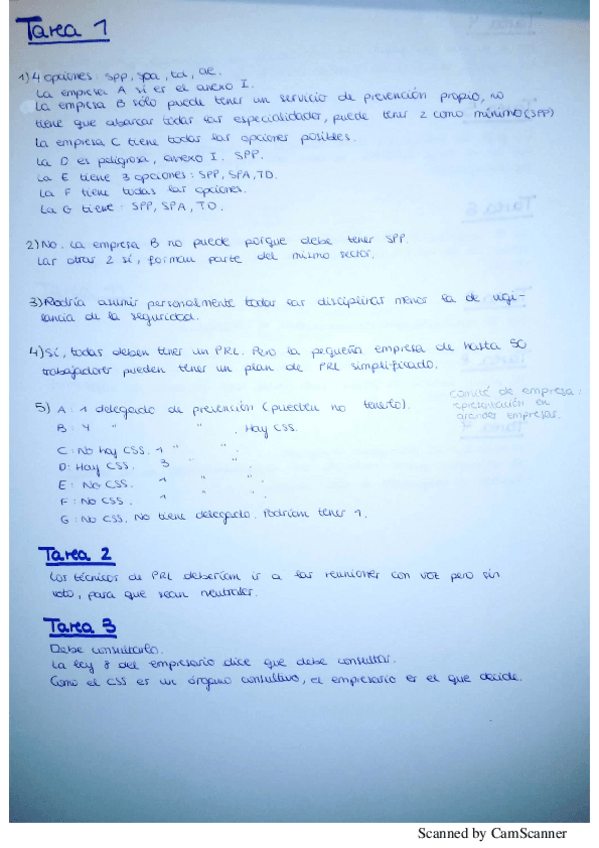 Tarea 1
1) 4 opciones: SPP, spa, td, ae.
La empresa A sí es el anexo I.
La empresa B sólo puede tener un servicio de prevención propio, no
tiene que abarcar todas las especialidades, puede tener 2 como mínimo (SPP)
La empresa C tiene todas las opciones posibles.
La D es peligrosa, anexo I. SPP.
La E tiene 3 opciones: SPP, SPA, TD.
La F tiene todas las opciones.
La G tiene: SPP, SPA, TD.
2) No. La empresa B no puede porque debe tener SPP.
Las otras 2 sí, forman parte del mismo sector.
3) Podría asumir personalmente todas las disciplinas menos la de vigi-
lancia de la seguridad.
4) Sí, todas deben tener un PRL. Pero la pequeña empresa de hasta 50
trabajadores pueden tener un plan de PRL simplificado.
5) A: 1 delegado de prevención (pueden no tenerlo).
comité de empresa:
representación en
grandes empresas.
B: 4 " " . Hay CSS.
C: No hay CSS. 1 " " .
D: Hay CSS. 3 " " .
E: No CSS. 1 " " .
F: No CSS. 1 " " .
G: No CSS. No tiene delegado. Podrían tener 1.
Tarea 2
Los técnicos de PRL deberían ir a las reuniones con voz pero sin
voto, para que sean neutrales.
Tarea 3
Debe consultarlo.
La ley 8 del empresario dice que debe consultar.
Como el CSS es un órgano consultivo, el empresario es el que decide.
Scanned by CamScanner